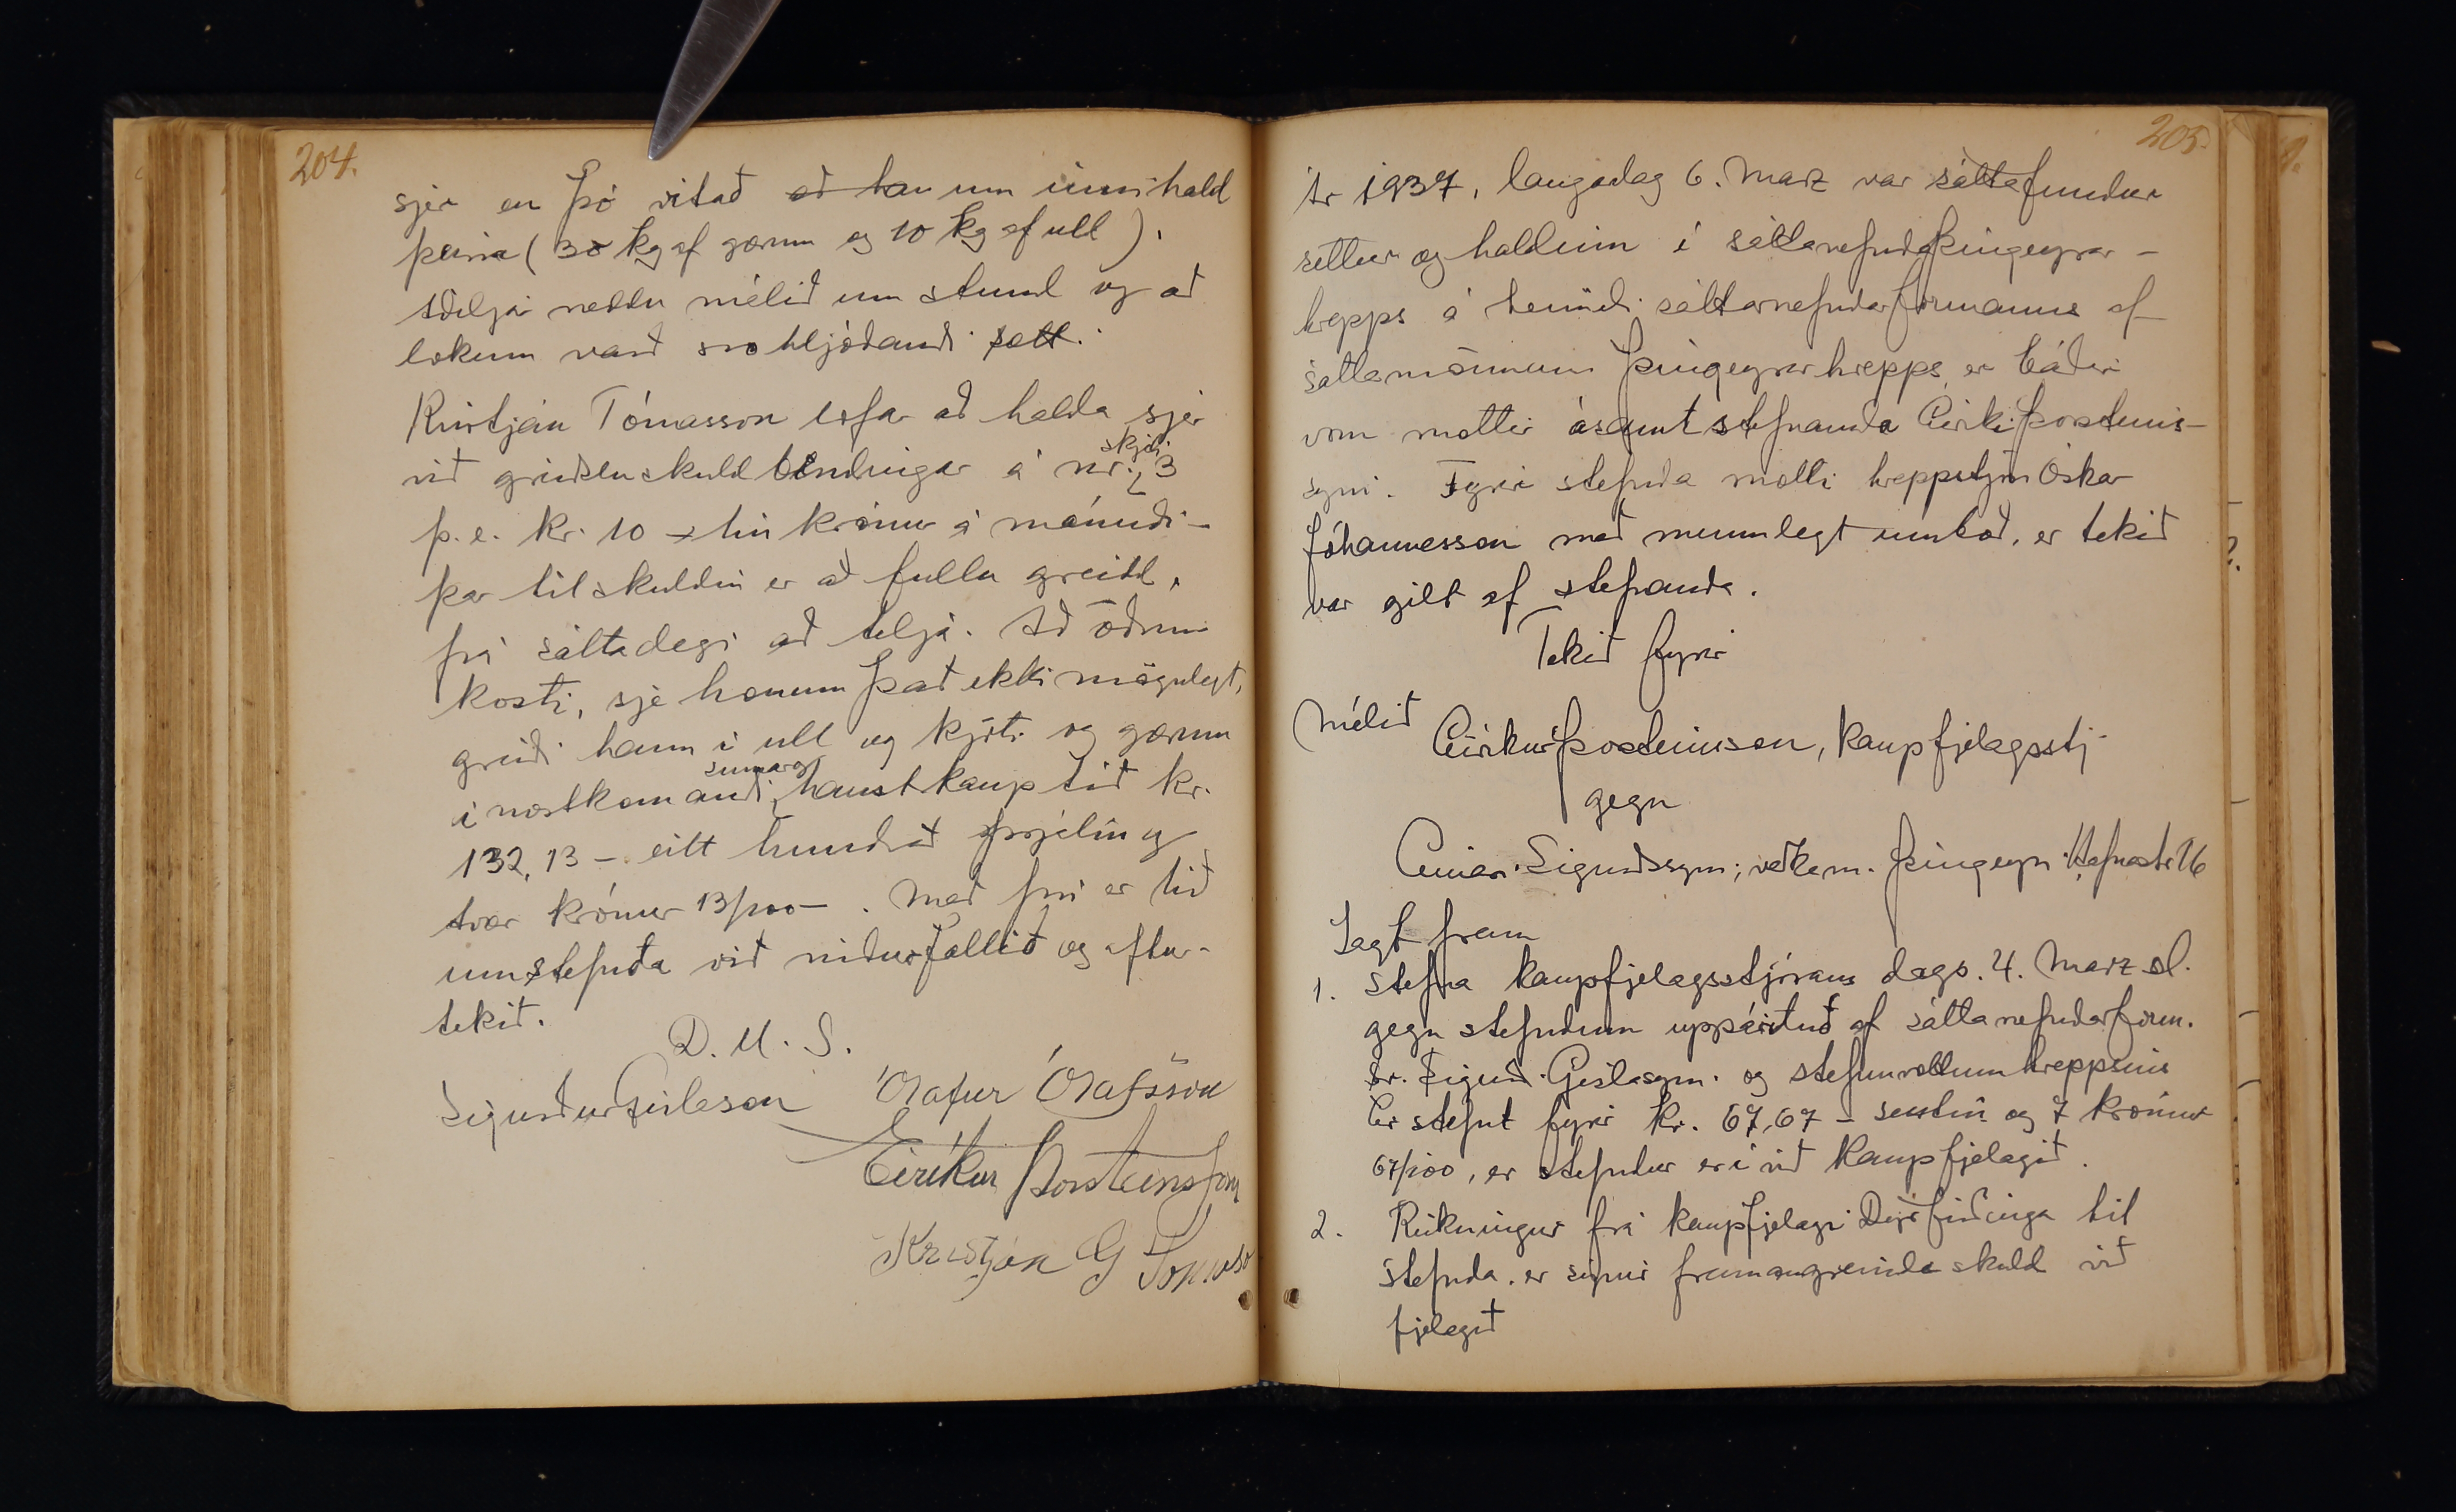 204.
sjer en þó vitað að han um innihald
þeirra (30 kg af gærum og 10 kg af ull).
Aðiljar ræddu málið um stund og að
lokum varð svohljóðandi sætt.
Kristján Tómasson lofar að halda sjer
við greiðsluskuldbindingar á skjali
nr. 3
þ. e. kr. 10 - tíu krónur á mánuði -
þar til skuldin er að fullu greidd,
frá sáttadegi að telja. Að öðrum
kosti, sje honum það ekki mögulegt,
greiði hann í ull og kjöti og gærum
í næstkomandi sumar og haustkauptíð kr.
132,13 - eitt hundrað þrjátíu og
tvær krónur 13/100 - . Með því er hið
umstefnda við niðurfallið og aftur-
tekið.
D. U. S.
Sigurður Gíslason Ólafur Ólafsson
Eiríkur Þorsteinsson
Kristján G Tómasso
205.
Ár 1937, laugadag 6. Marz var sáttafundur
settur og haldinn í sáttanefnd Þingeyrar-
hrepps á heimili sáttarnefndarformanns af
sáttamönnum Þingeyrarhrepps, er báðir
voru mættir ásamt stefnanda Eiríki Þorsteins-
syni. Fyrir stefnda mætti hreppstjóri Óskar
Jóhannesson með munnlegt umboð, er tekið
var gilt af stefnanda.
Tekið fyrir
Málið Eiríkur Þorsteinsson, kaupfjelagsstj.
gegn
Einar Sigurðssyni, verkam. Þingeyri Hafnarstr 16
Lagt fram
1. Stefna kaupfjelagsstjórans dags. 4. Marz sl.
gegn stefndum uppárituð af sáttanefndarform.
hr. Sigurð. Gíslasyni og stefnuvottum hreppsins
Er stefnt fyrir kr. 67,67 - sextíu og 7 krónur
67/100, er stefndur er í við Kaupfjelagið.
2. Reikningur frá kaupfjelagi Dýrfirðinga til
stefnda, er sýnir framangreinda skuld við
fjelagið